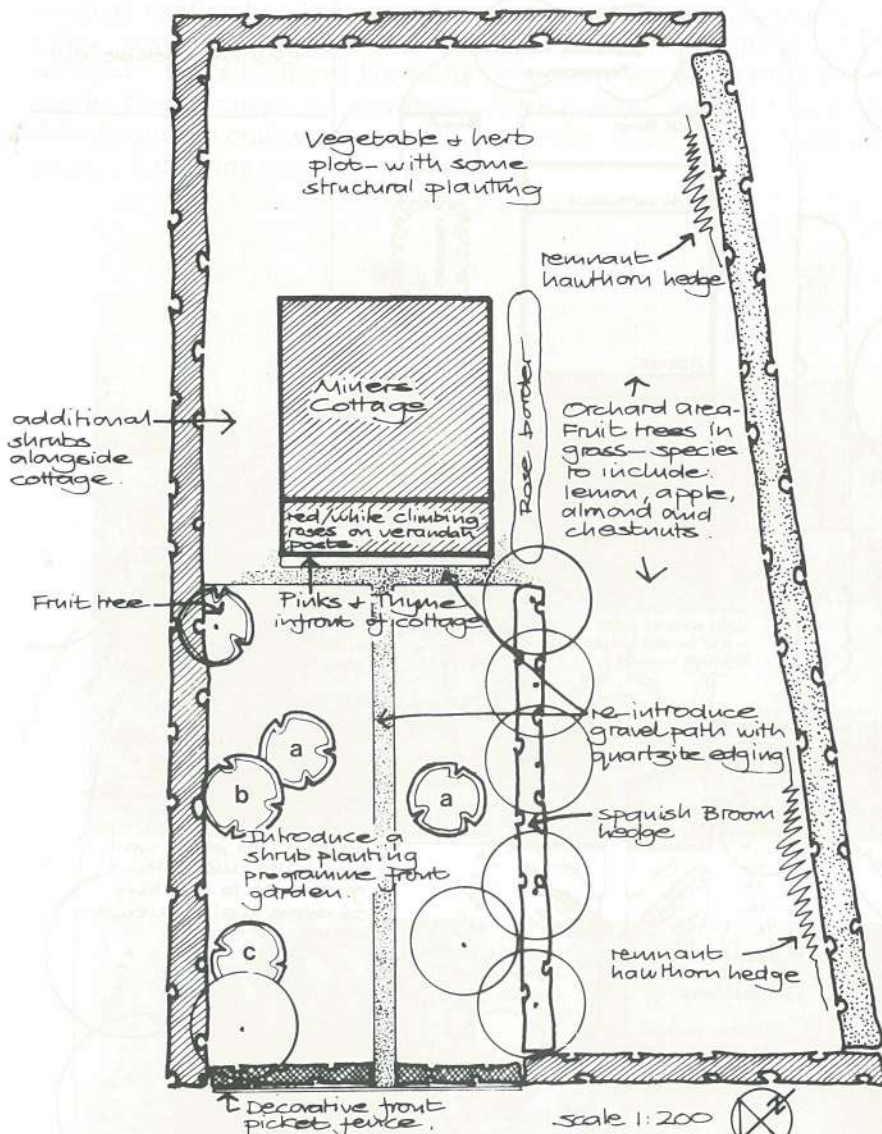 Vegetable + herb
plot - with some
structural planting
remnant
hawthorn hedge
Miners
Cottage
Rose border
Orchard area-
Fruit trees in
grass - species
to include:
lemon, apple,
almond and
chestnuts.
additional
shrubs
alongside
cottage.
red/white climbing
roses on verandah
posts.
Fruit tree
Pinks + Thyme
infront of cottage
re-introduce
gravel path with
quartzite edging
a
b
a
Spanish Broom
hedge
Introduce a
shrub planting
programme front
garden.
c
remnant
hawthorn hedge
Decorative front
picket fence.
scale 1:200
N